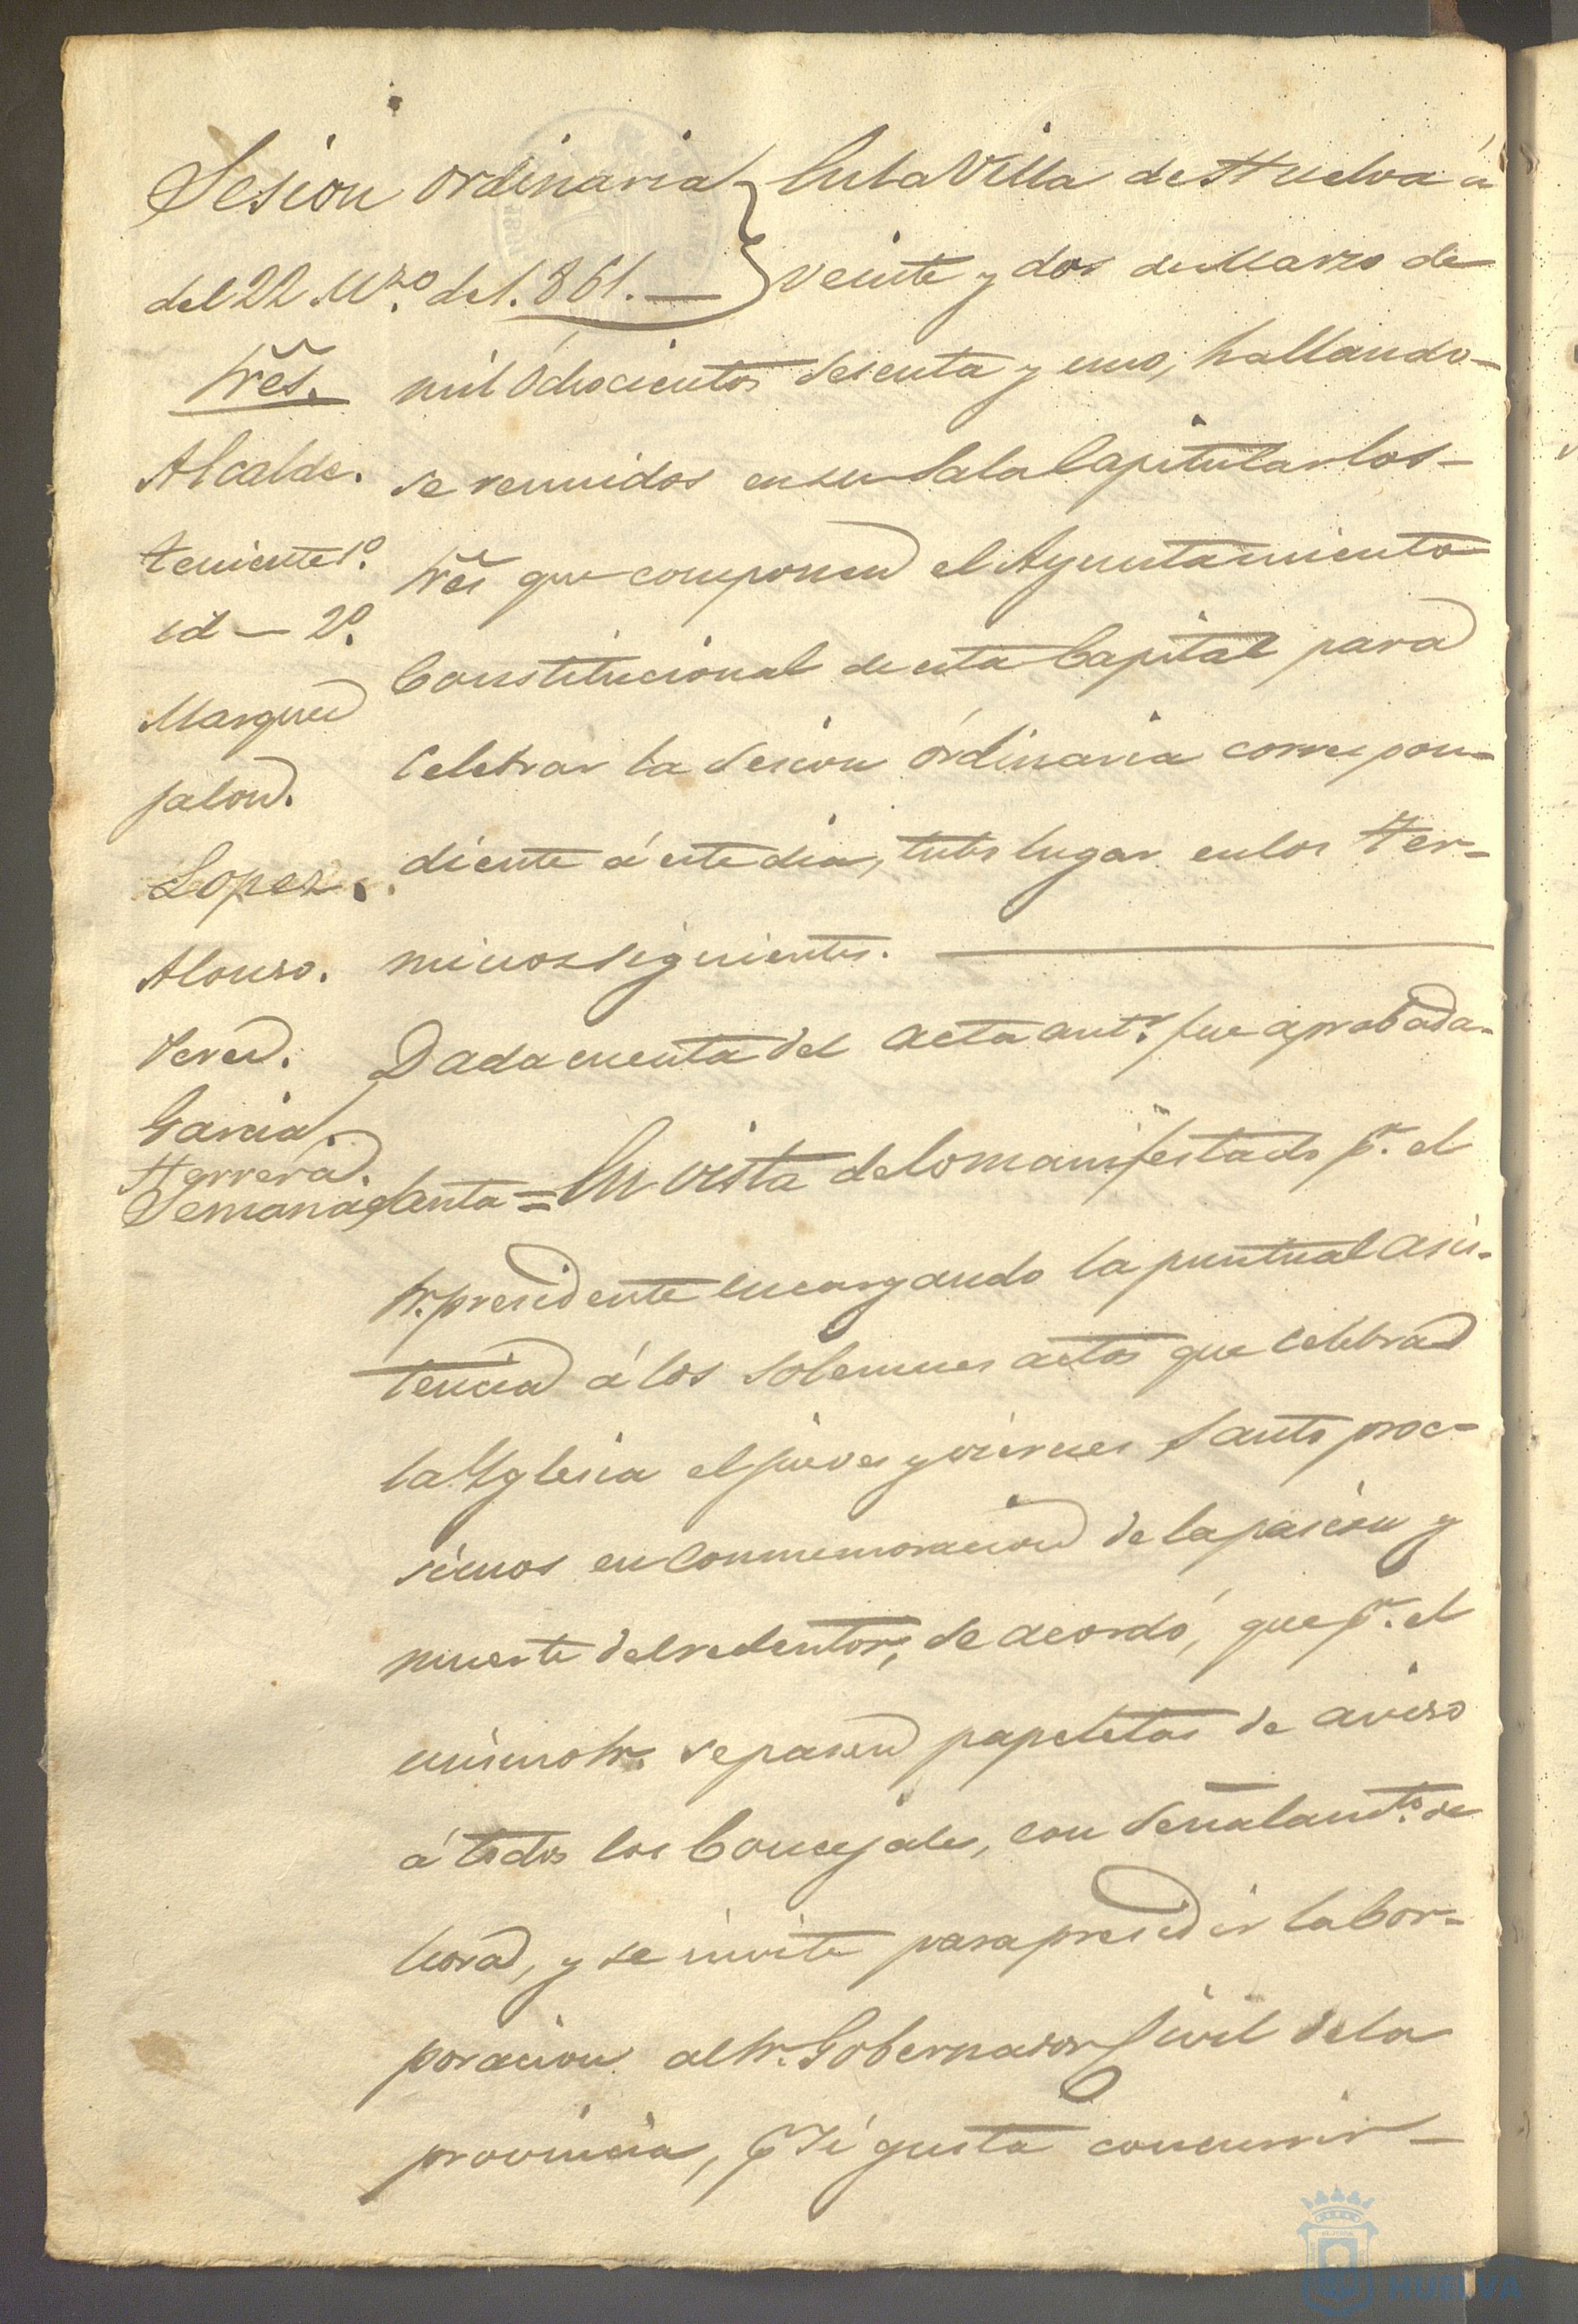 Sesion ordinaria
del 22 Mzo. de 1.861.
Sres.
Alcalde.
teniente 1º.
id — 2º.
Marquez
Jalon.
Lopez.
Alonso.
Perez.
Garcia.
Herrera.
En la Villa de Huelva á
veinte y dos de Marzo de
mil Ochocientos sesenta y uno, hallando-
se reunidos en su Sala Capitular los-
Sres que componen el Ayuntamiento
Constitucional de esta Capital para
Celebrar la Sesion Ordinaria correspon-
diente á este dia, tubo lugar en los ter-
minos siguientes.
Dada cuenta del acta antr. fue aprobada.
Semana Santa = En vista de lo manifestado pr. el
Sr. presidente encargando la puntual asis-
tencia á los solemnes actos que celebra
la Yglesia el jueves y viernes Santo proc-
simos en Conmemoracion de la pasion y
muerte del redentor; se acordó, que pr. el
mismo Sr. se pasen papeletas de aviso
á todos los Concejales, con señalamto. de
hora, y se invite para presidir la Cor-
poracion al Sr. Gobernador Civil de la
provincia, pr. si gusta concurrir-
HUELVA